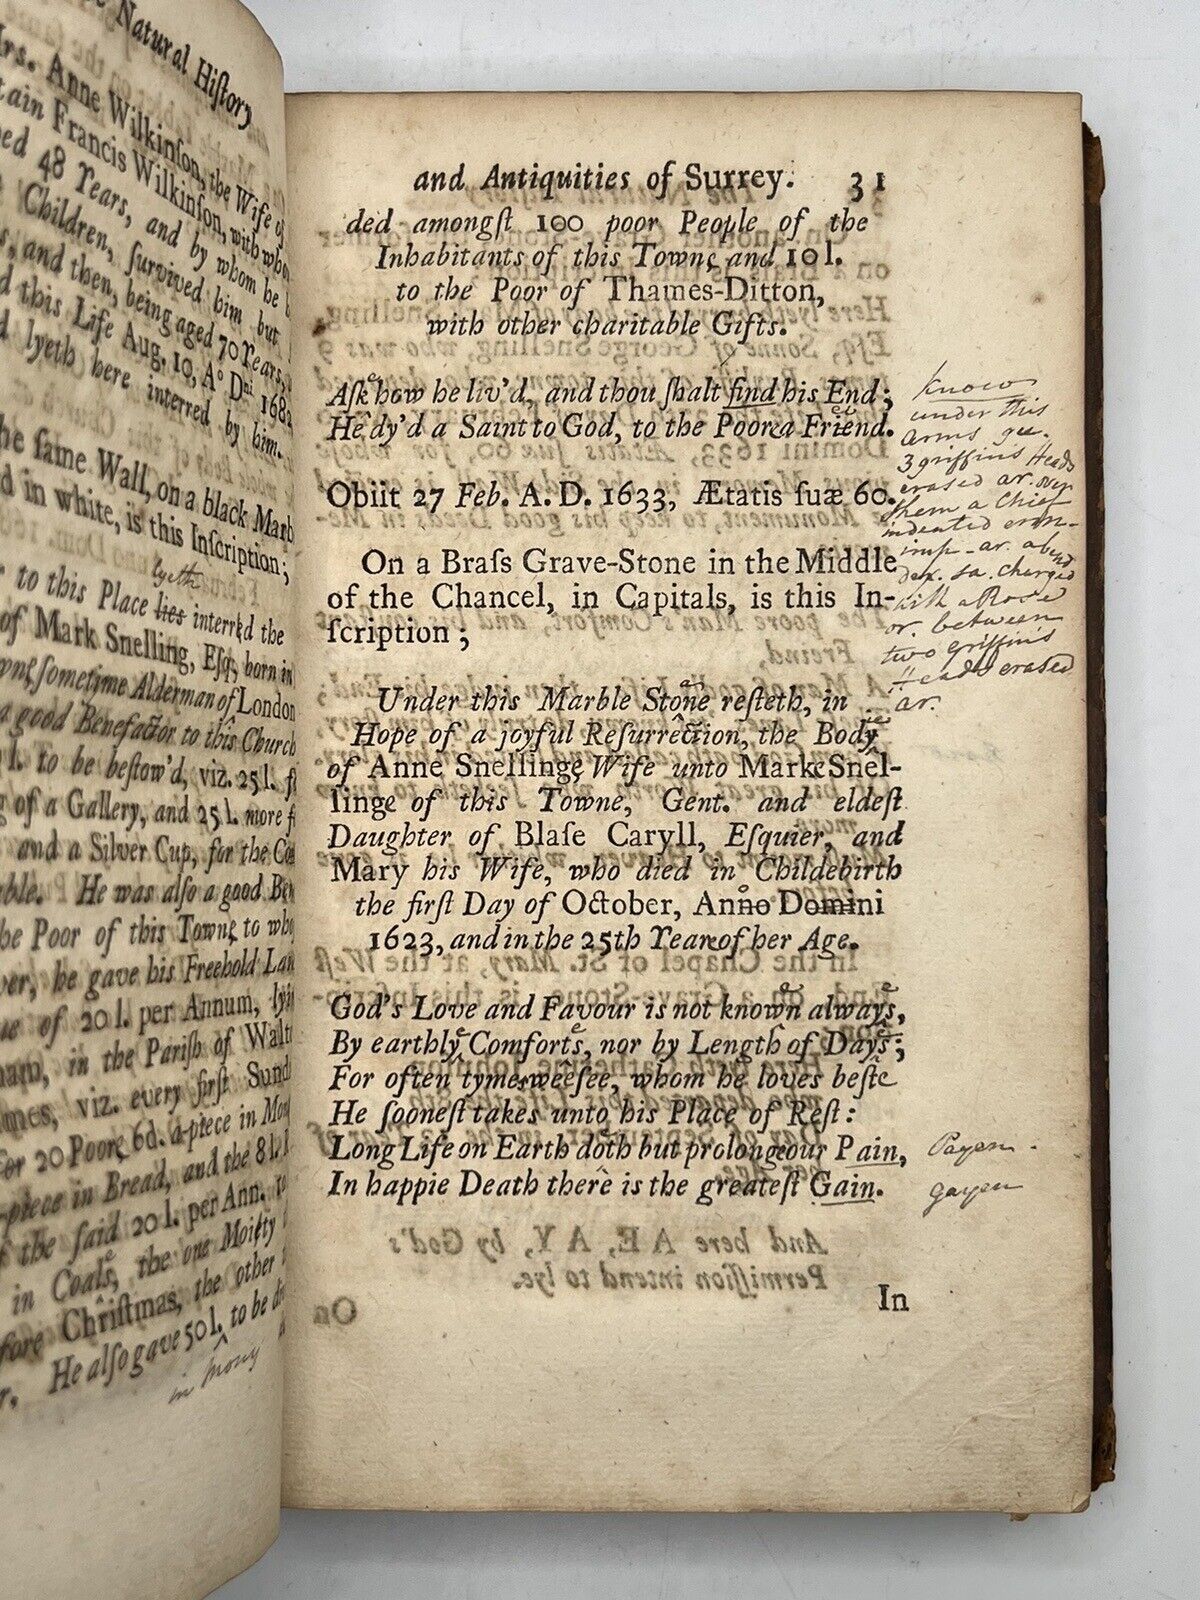 Natural Hiſtory
Mrs. Anne Wilkinſon, the Wife of
Francis Wilkinſon, with
48 Years, and by whom he
Children, ſurvived him but
and then, being aged 70 Years,
this Life Aug. 10, A° Dni 168
lyeth here interred by him.
ſame Wall, on a black Marb
in white, is this Inſcription;
lyeth
to this Place lies interred the
of Mark Snelling, Eſq; born in
ſometime Alderman of London
a good Benefactor to this Church
l. to be beſtow'd, viz. 25 l.
of a Gallery, and 25 l. more
and a Silver Cup, for the
He was also a good
the Poor of this Towne to
he gave his Freehold
of 20 l. per Annum,
in the Pariſh of
viz. every firſt
For 20 Poore 6d. a-piece in
-piece in Bread, and the 8 l.
the ſaid 20 l. per Ann.
in Coals, the one Moiety
Chriſtmas, the other
He alſo gave 50 l. to be
in mony
and Antiquities of Surrey. 31
ded amongſt 100 poor People of the
Inhabitants of this Towne, and 10 l.
to the Poor of Thames-Ditton,
with other charitable Gifts.
Aſke how he liv'd, and thou ſhalt find his End;
He dy'd a Saint to God, to the Poore a Friend.
Obiit 27 Feb. A. D. 1633, Ætatis ſuæ 60.
know
under this
arms
3 griffins Heads
erased ar. over
them a Chief
indented
ar. a bend
dex. sa. charged
with a Rose
or. between
two griffins
Heads erased
ar.
On a Braſs Grave-Stone in the Middle
of the Chancel, in Capitals, is this In-
ſcription;
Under this Marble Stone reſteth, in
Hope of a joyful Reſurrection, the Body
of Anne Snellinge, Wife unto Marke Snel-
linge of this Towne, Gent. and eldeſt
Daughter of Blaſe Caryll, Eſquier, and
Mary his Wife, who died in Childebirth
the firſt Day of October, Anno Domini
1623, and in the 25th Yeare of her Age.
God's Love and Favour is not known always,
By earthly Comforts, nor by Length of Days;
For often tymes we ſee, whom he loves beſte
He ſooneſt takes unto his Place of Reſt:
Long Life on Earth doth but prolonge our Pain,
In happie Death there is the greateſt Gain.
Payen
gayen
In